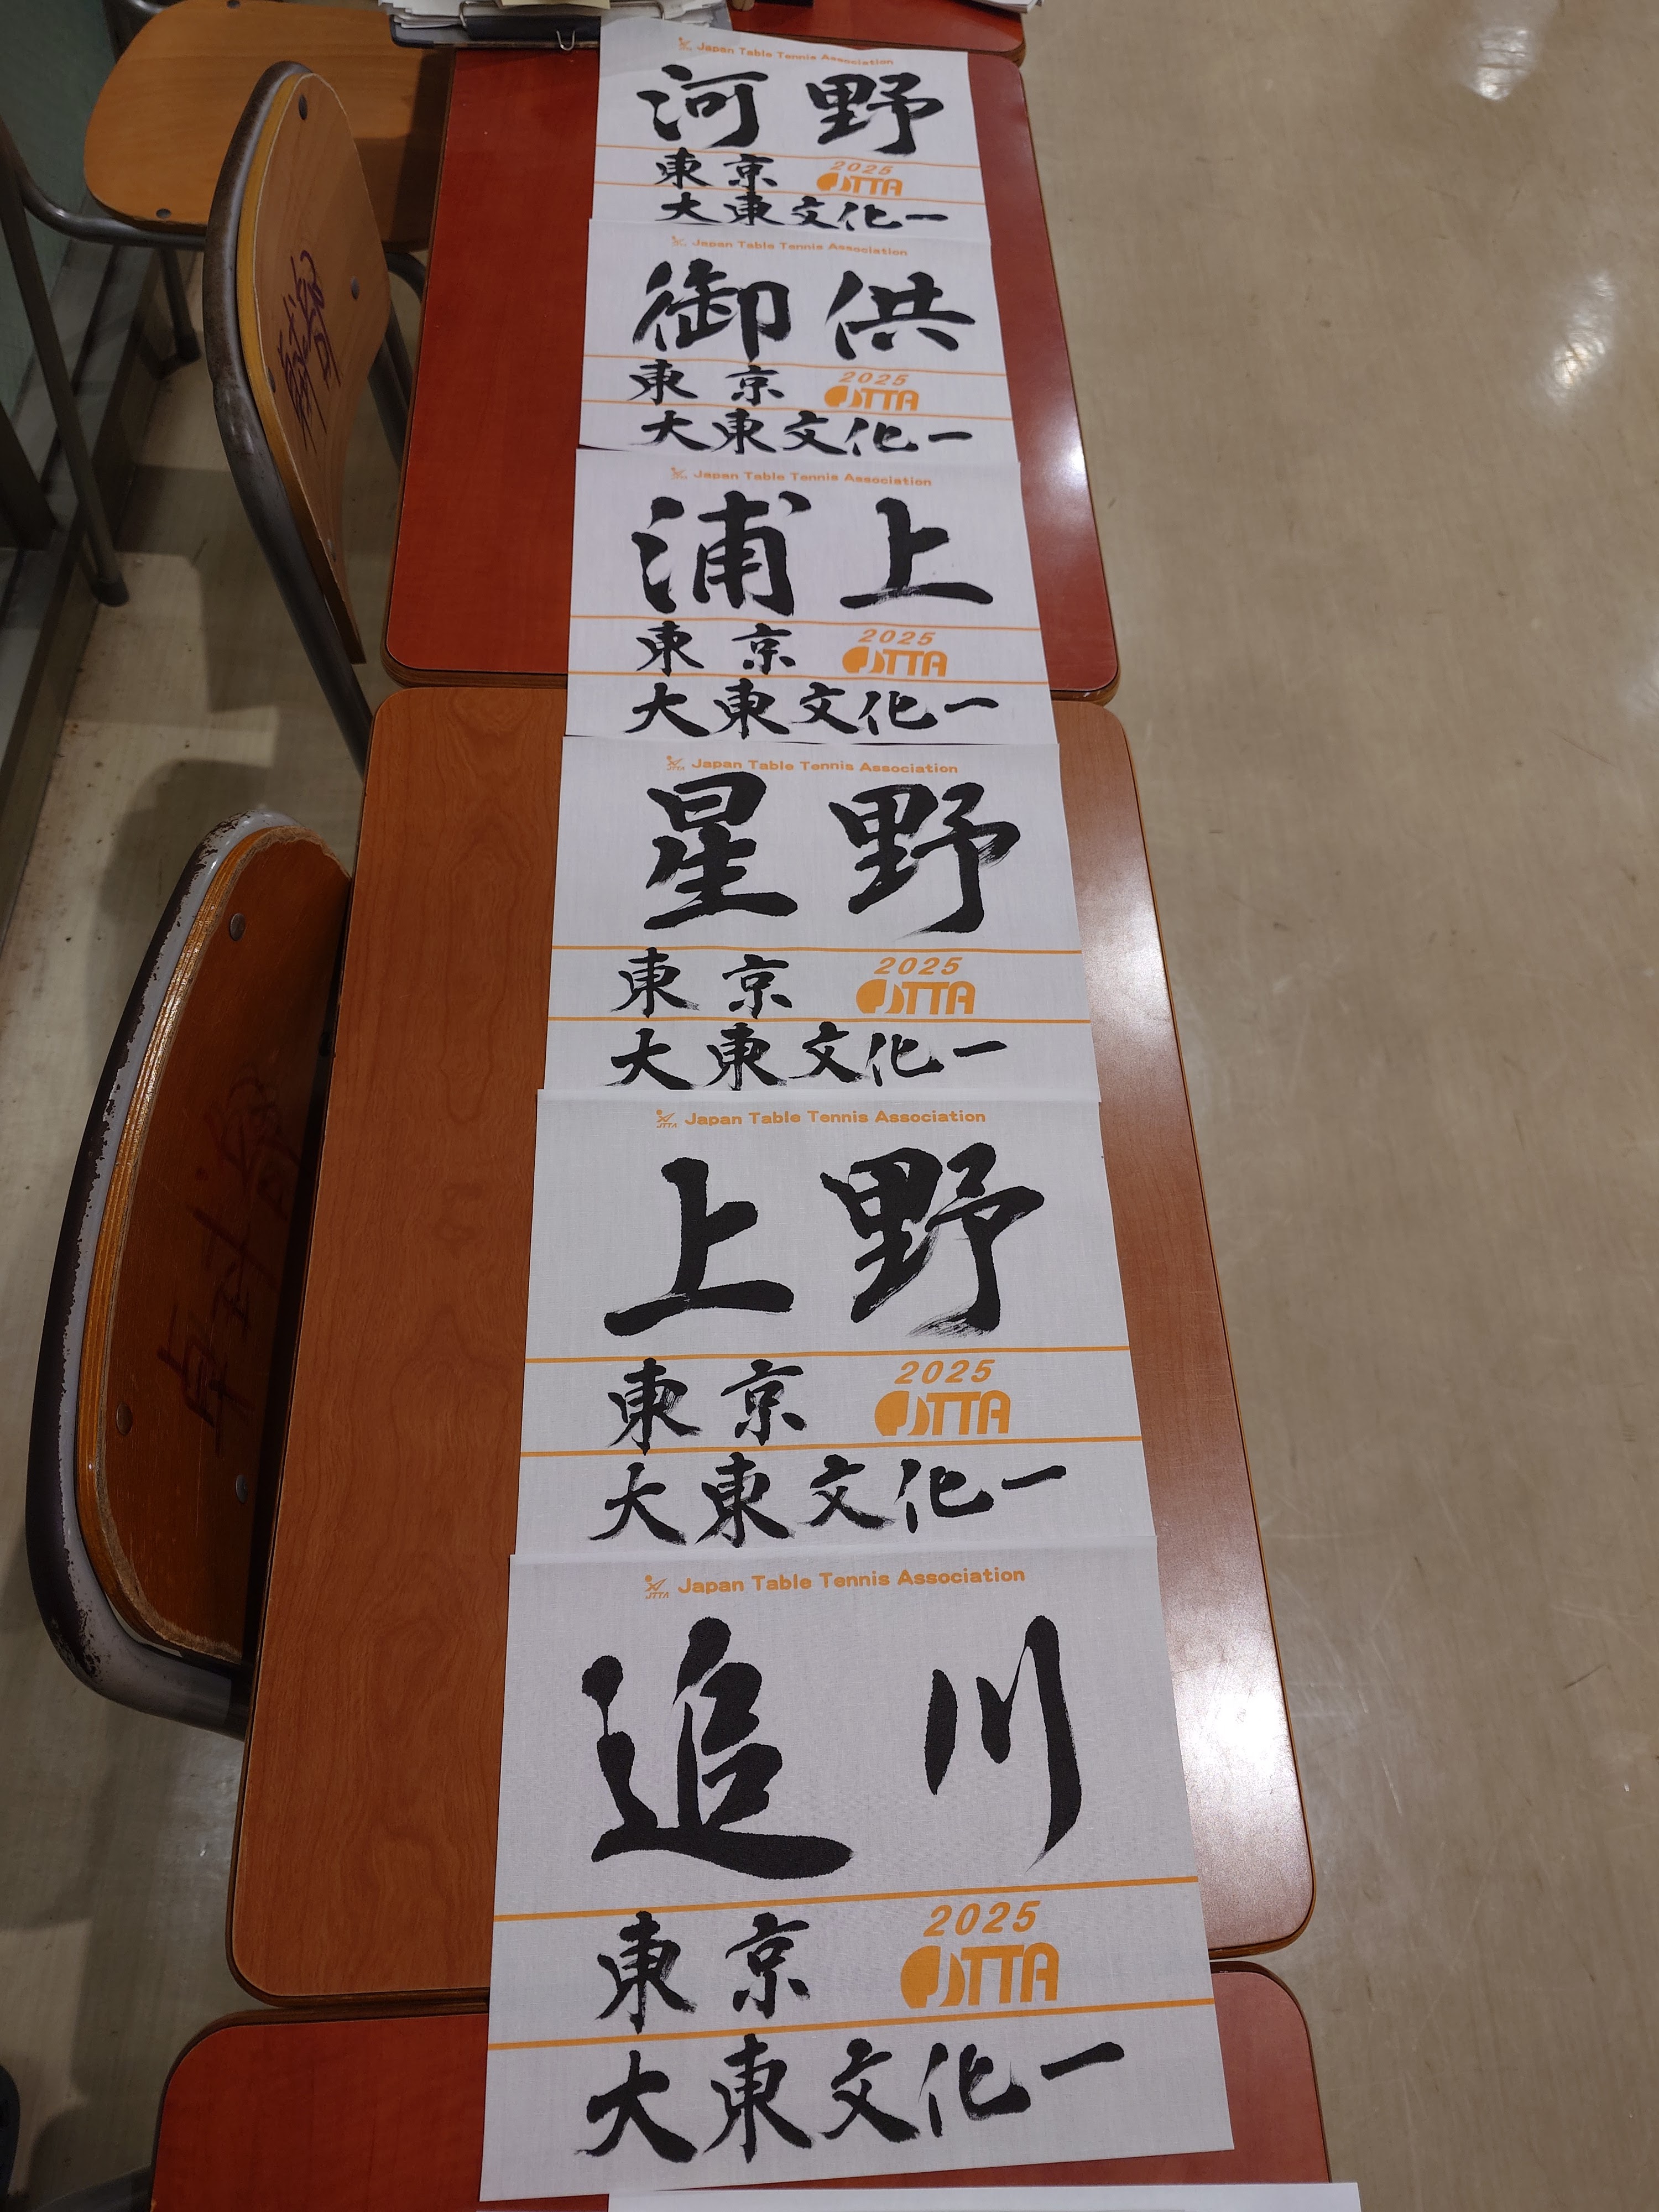 Japan Table Tennis Association
河野
東京 2025 JTTA
大東文化一
Japan Table Tennis Association
御供
東京 2025 JTTA
大東文化一
Japan Table Tennis Association
浦上
東京 2025 JTTA
大東文化一
JTTA Japan Table Tennis Association
星野
東京 2025 JTTA
大東文化一
JTTA Japan Table Tennis Association
上野
東京 2025 JTTA
大東文化一
JTTA Japan Table Tennis Association
追川
東京 2025 JTTA
大東文化一